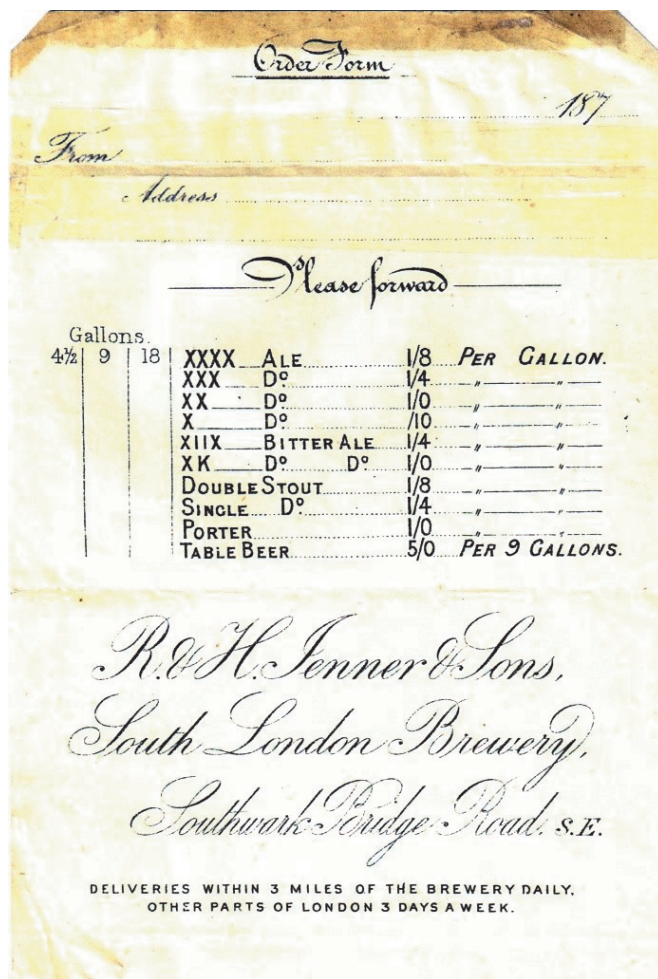 Order Form
187
From
Address
Please forward
Gallons.
4½ 9 18 XXXX ALE 1/8 PER GALLON.
XXX Dº 1/4 " "
XX Dº 1/0 " "
X Dº /10 " "
XIIX BITTER ALE 1/4 " "
XK Dº Dº 1/0 " "
DOUBLE STOUT 1/8 " "
SINGLE Dº 1/4 " "
PORTER 1/0 " "
TABLE BEER 5/0 PER 9 GALLONS.
R. & H. Jenner & Sons,
South London Brewery,
Southwark Bridge Road. S.E.
DELIVERIES WITHIN 3 MILES OF THE BREWERY DAILY,
OTHER PARTS OF LONDON 3 DAYS A WEEK.